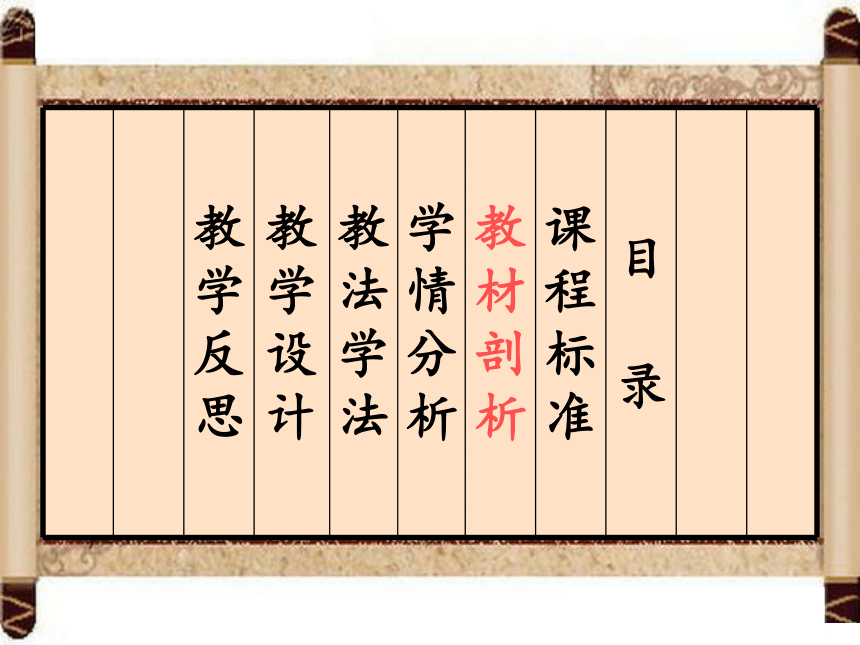 目录
课程标准
教材剖析
学情分析
教法学法
教学设计
教学反思